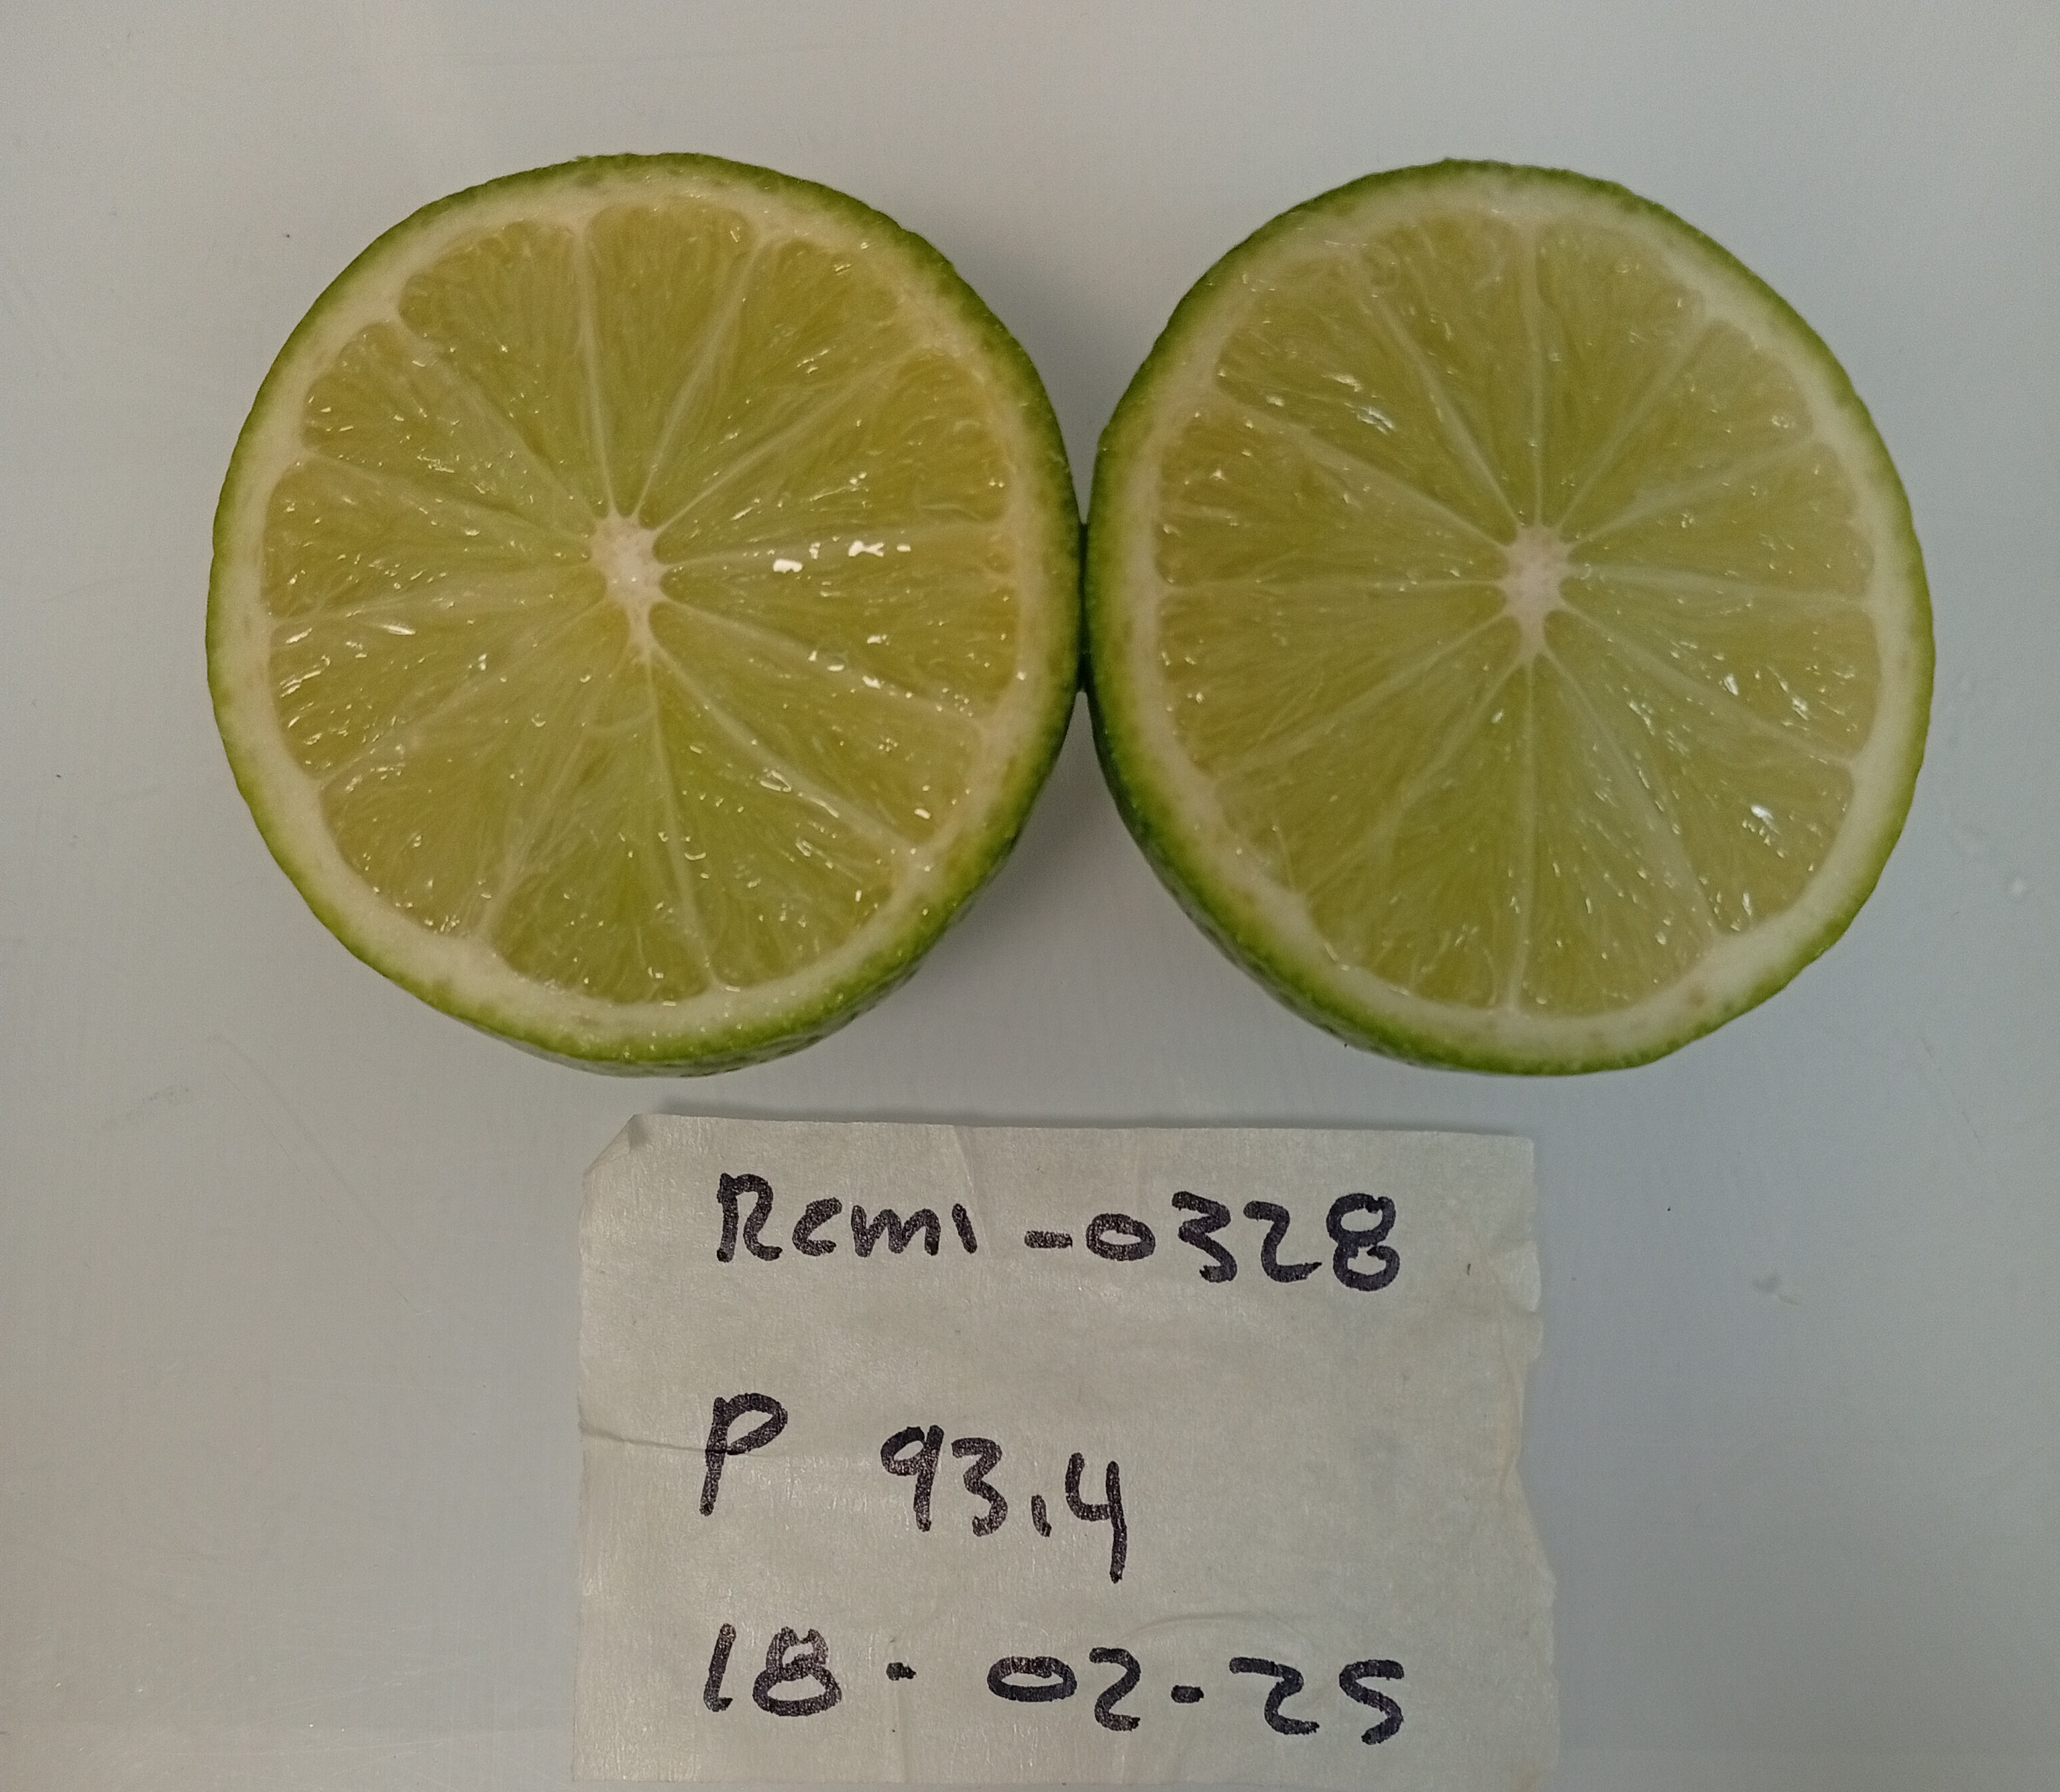 Remi -0328
P 93.4
18-02-25